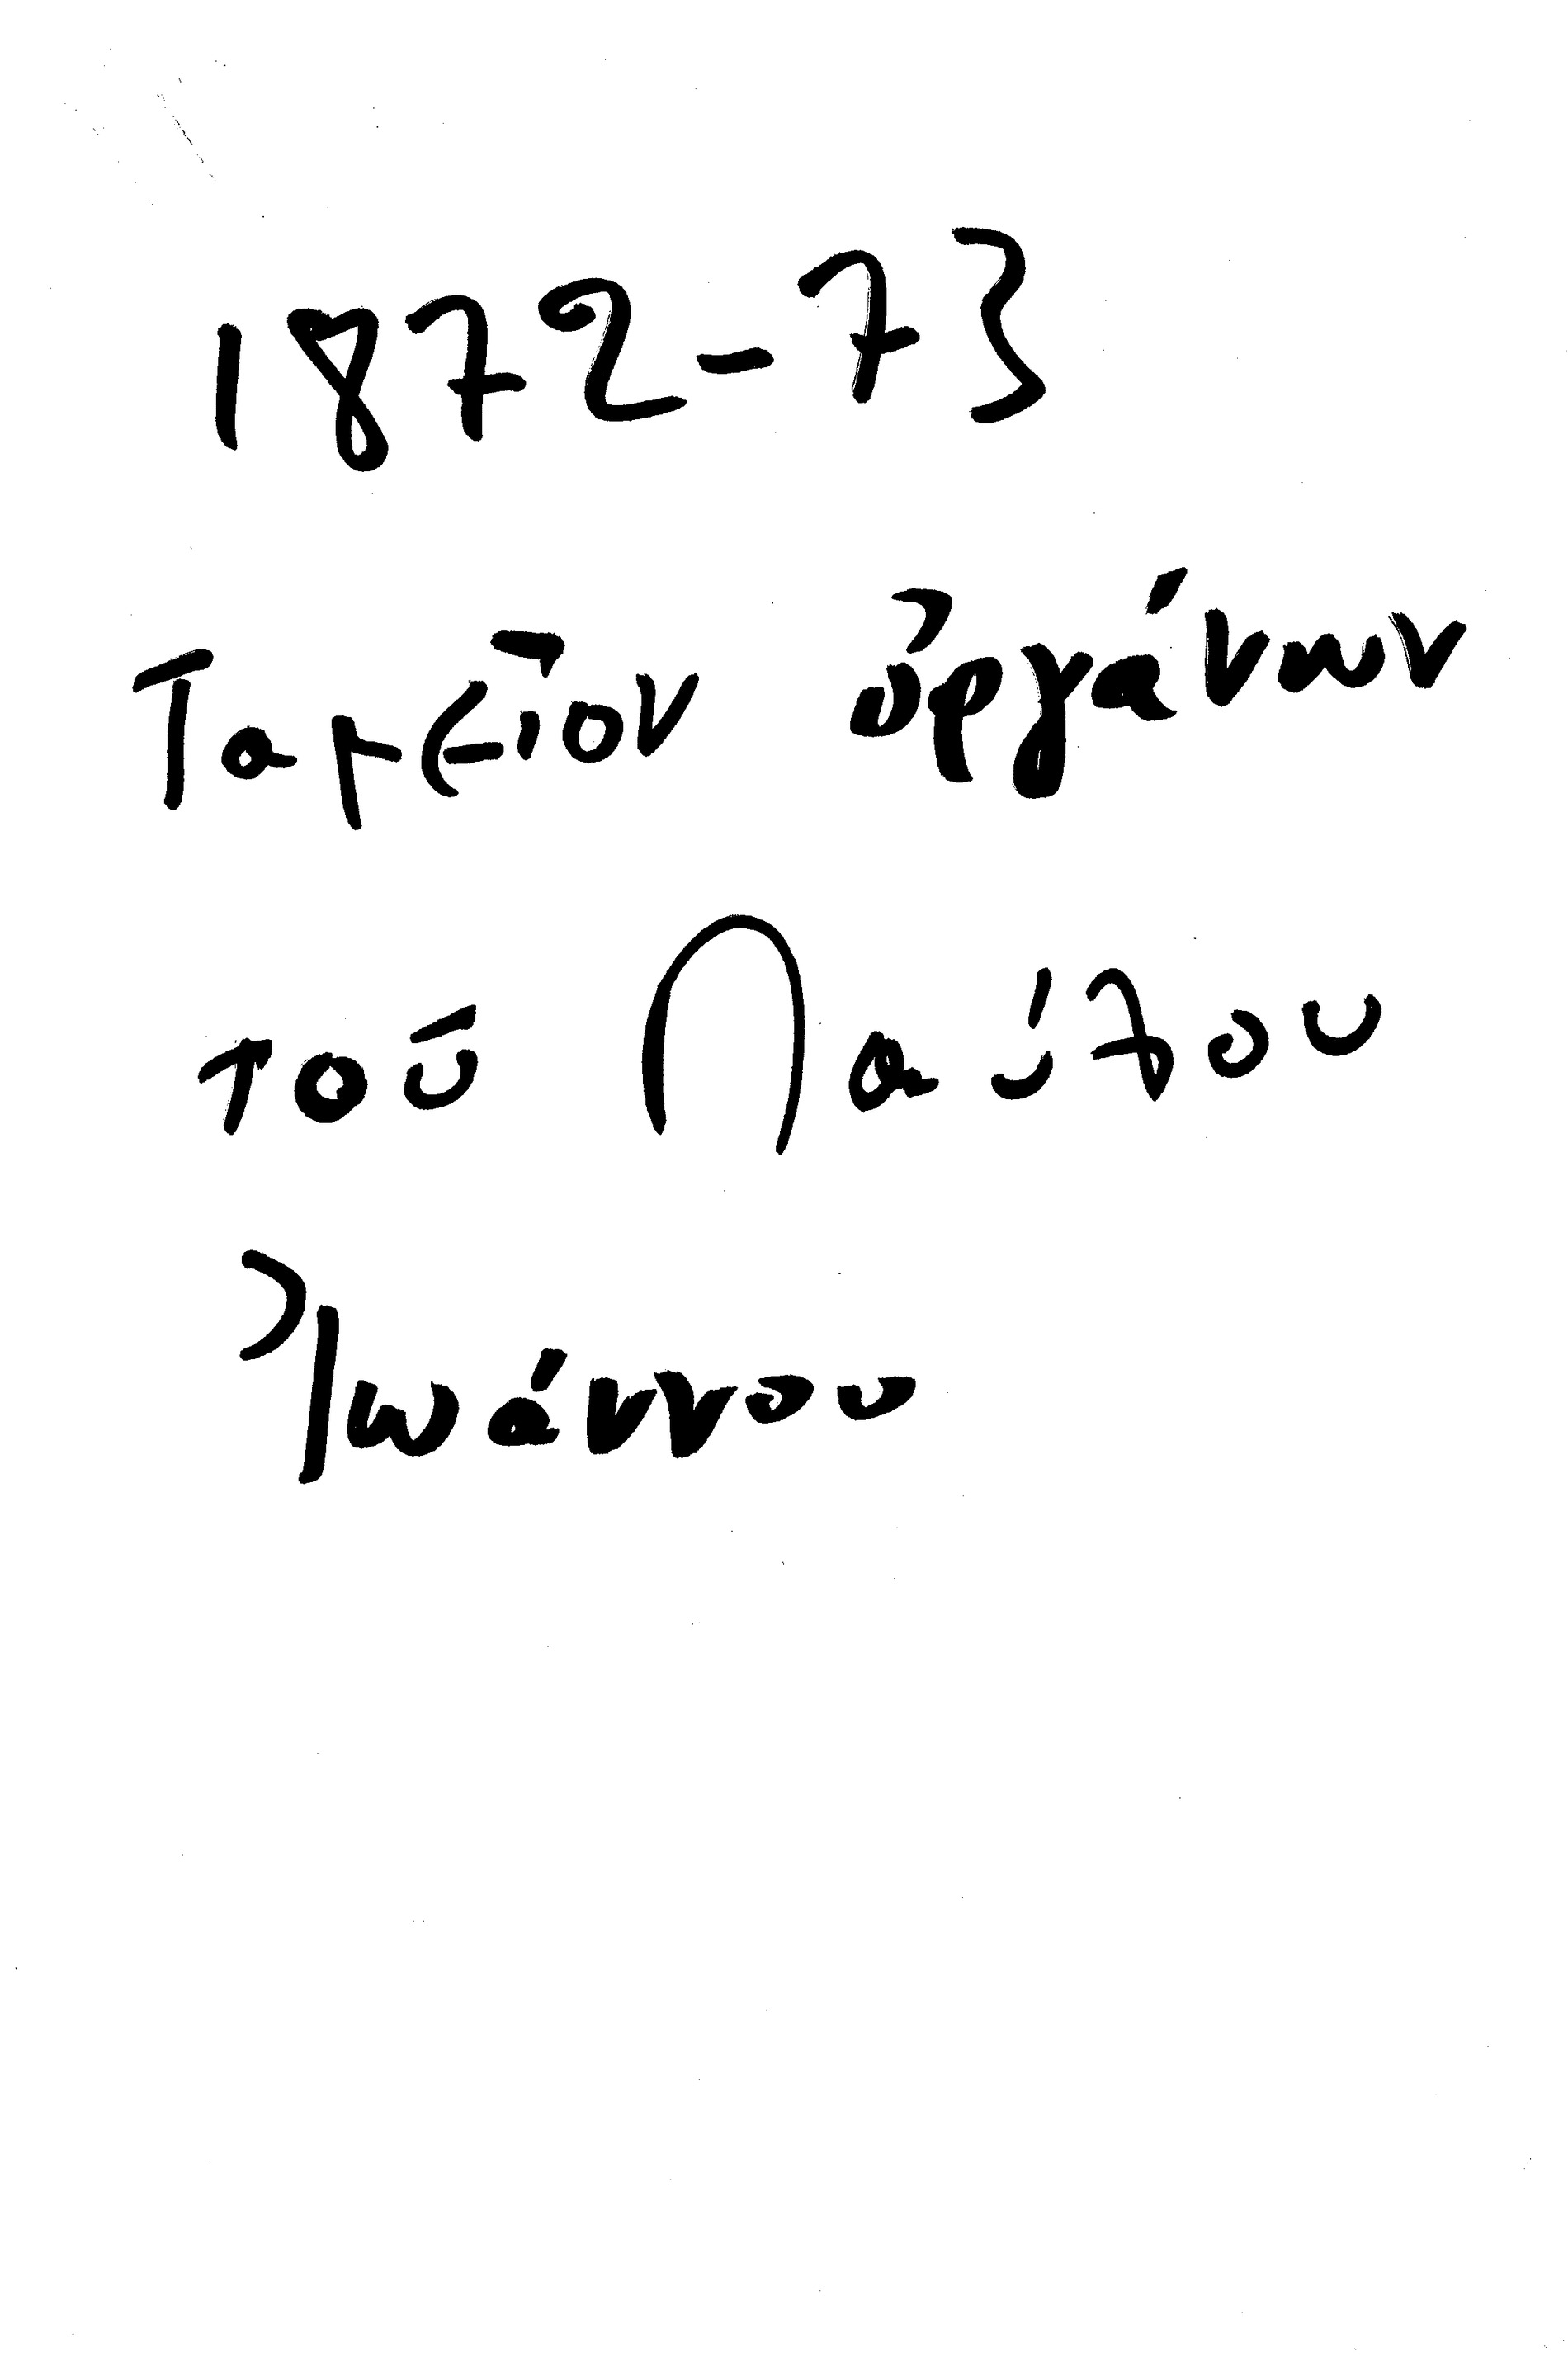 1872-73
Ταμεῖον ὀργάνων
τοῦ Παύλου
Ἰωάννου